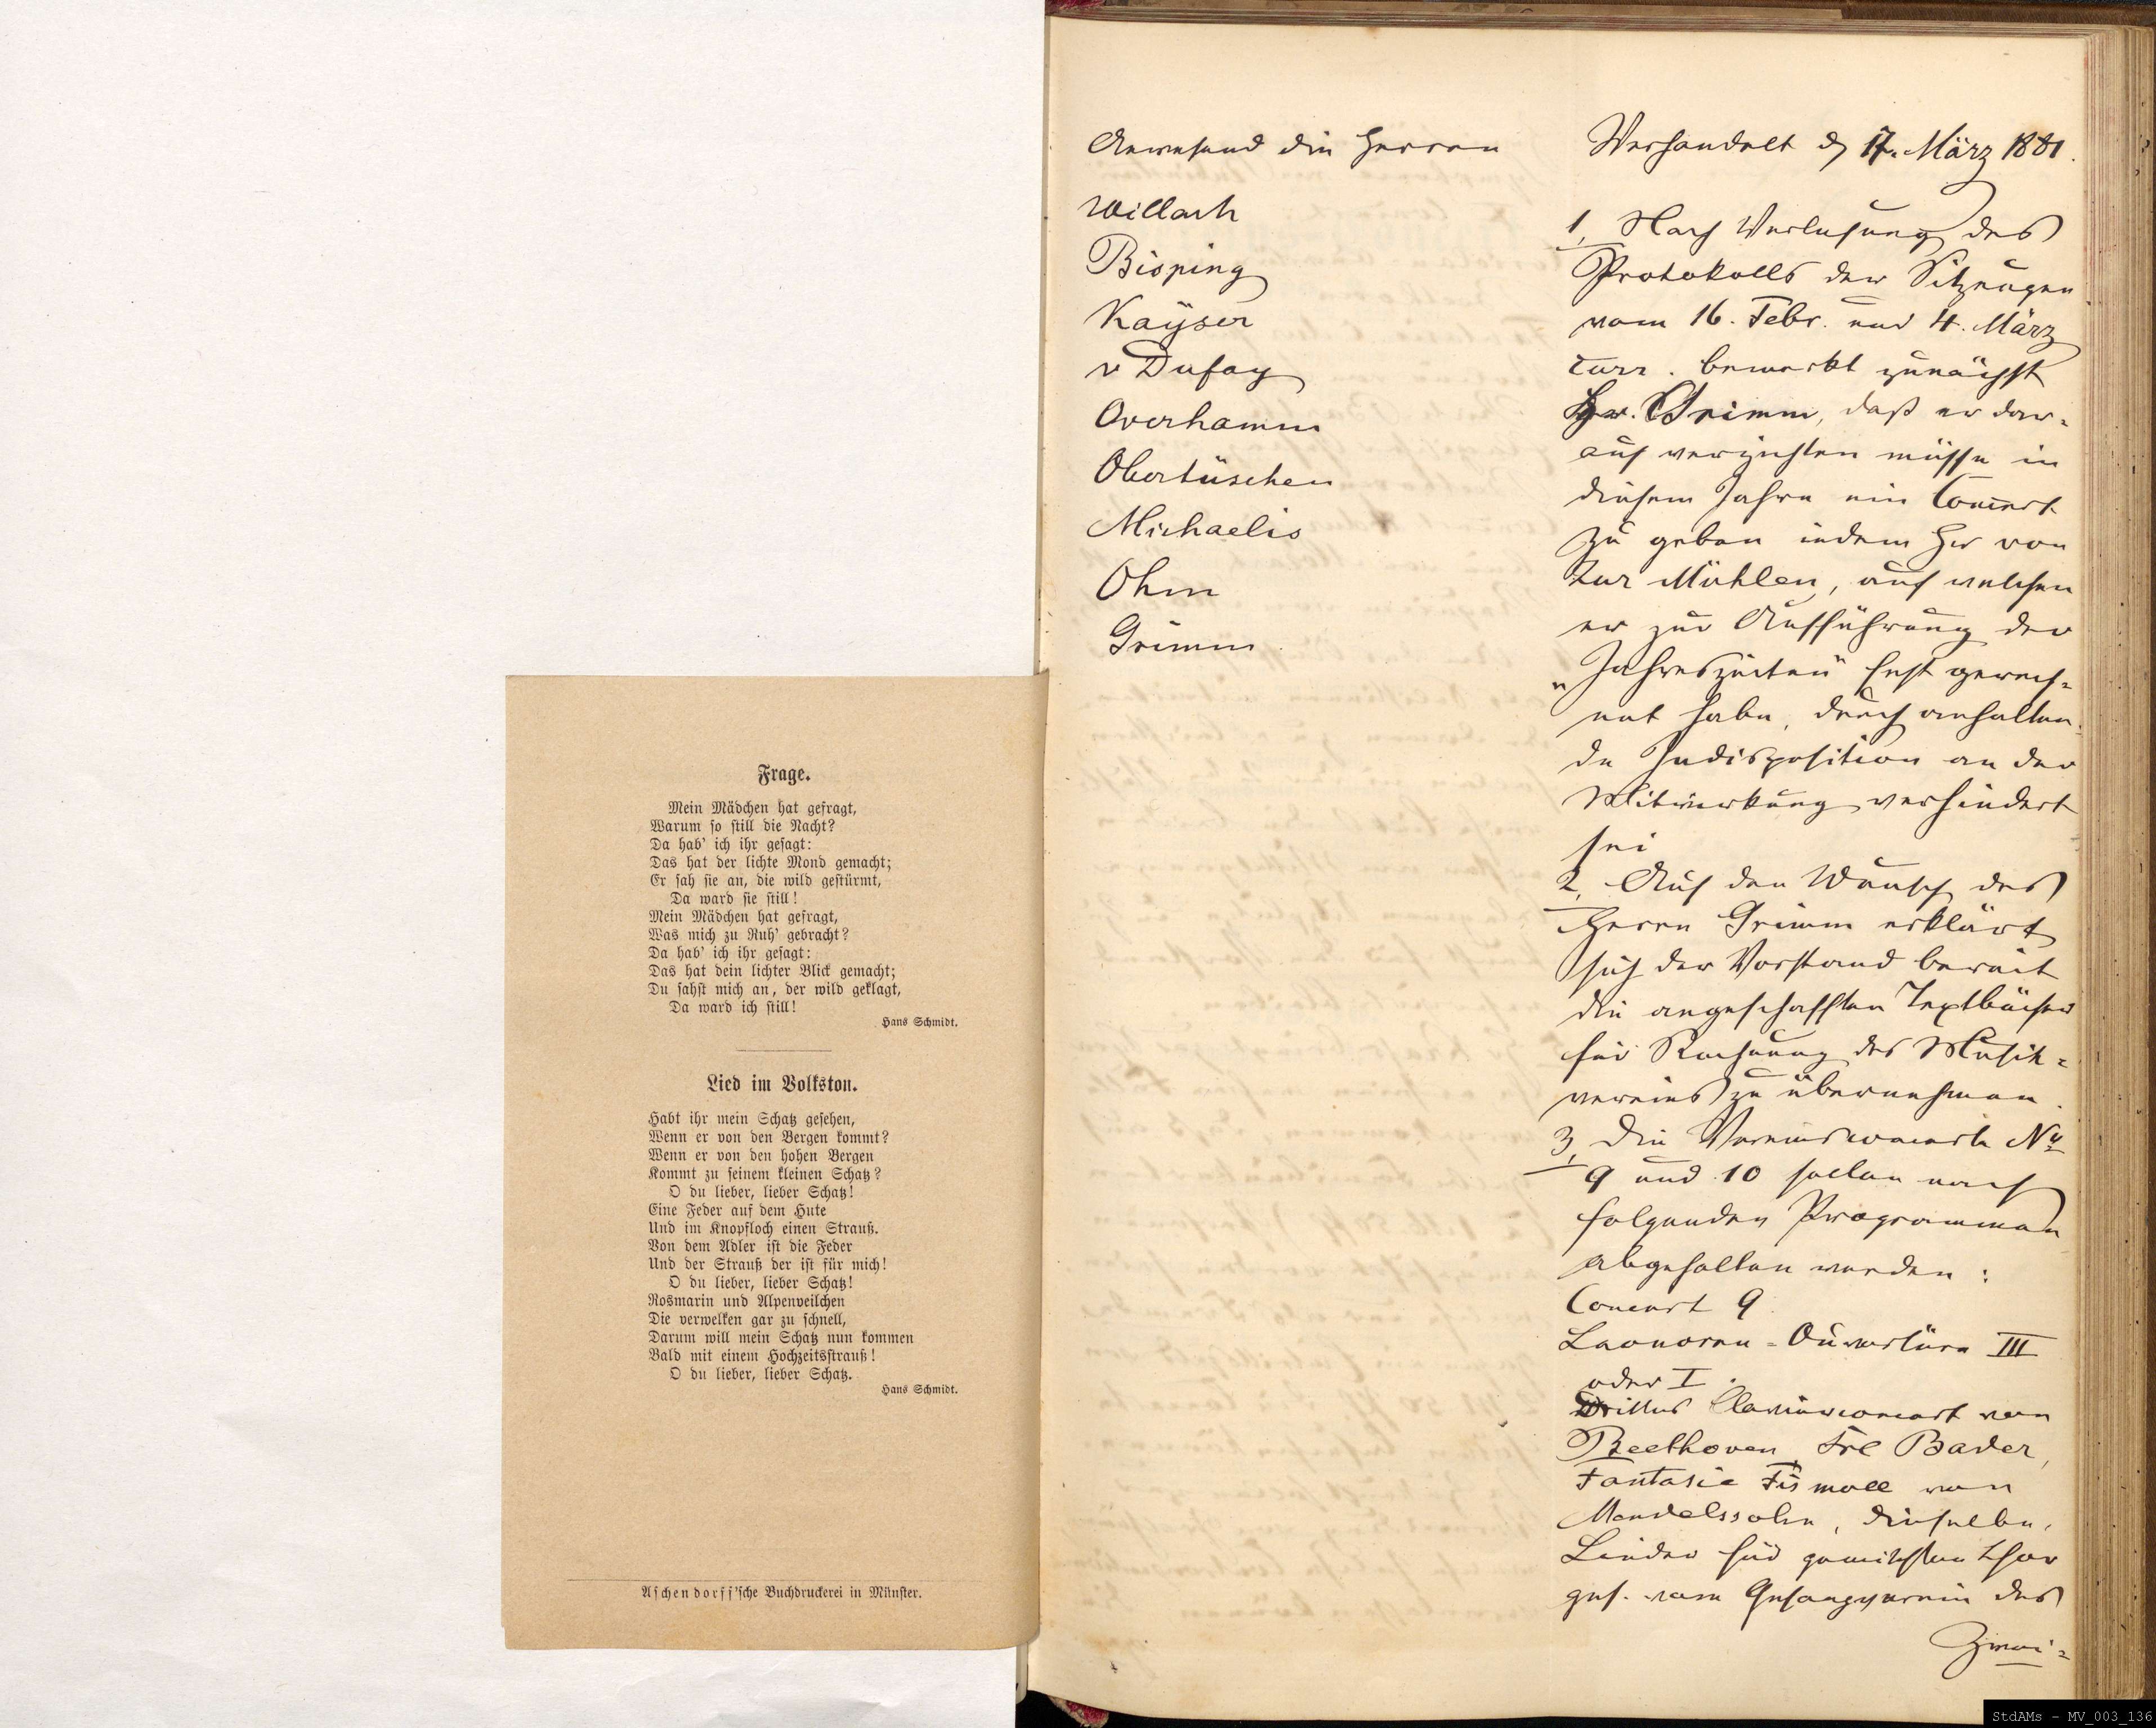 Frage.
Mein Mädchen hat gefragt,
Warum so still die Nacht?
Da hab' ich ihr gesagt:
Das hat der lichte Mond gemacht;
Er sah sie an, die wild gestürmt,
Da ward sie still!
Mein Mädchen hat gefragt,
Was mich zu Ruh' gebracht?
Da hab' ich ihr gesagt:
Das hat dein lichter Blick gemacht;
Du sahst mich an, der wild geklagt,
Da ward ich still!
Hans Schmidt.
Lied im Volkston.
Habt ihr mein Schatz gesehen,
Wenn er von den Bergen kommt?
Wenn er von den hohen Bergen
Kommt zu seinem kleinen Schatz?
O du lieber, lieber Schatz!
Eine Feder auf dem Hute
Und im Knopfloch einen Strauß.
Von dem Adler ist die Feder
Und der Strauß der ist für mich!
O du lieber, lieber Schatz!
Rosmarin und Alpenveilchen
Die verwelken gar zu schnell,
Darum will mein Schatz nun kommen
Bald mit einem Hochzeitsstrauß!
O du lieber, lieber Schatz.
Hans Schmidt.
Aschendorff'sche Buchdruckerei in Münster.
Anwesend die Herren
Willach
Bisping
Kaÿser
v Dufay
Overhamm
Obertüschen
Michaelis
Ohm
Grimm
Verhandelt d 17. März 1881.
1, Nach Verlesung des
Protokolls der Sitzungen
vom 16. Febr. und 4. März
curr. bemerkt zunächst
Hr. Grimm, daß er dar-
auf verzichten müsse in
diesem Jahre ein Concert
zu geben indem Hr von
Zur Mühlen, auf welchen
er zur Aufführung der
„Jahreszeiten“ fest gerech-
net habe, durch anhalten-
de Indisposition an der
Mitwirkung verhindert
sei
2, Auf den Wunsch des
Herrn Grimm erklärt
sich der Vorstand bereit
die angeschafften Textbücher
für Rechnung des Musik-
vereins zu übernehmen.
3, Die Vereinsconcerte No
9 und 10 sollen nach
folgenden Programmen
abgehalten werden:
Concert 9.
Leonoren-Ouvertüre III
oder I.
Drittes Clavierconcert von
Beethoven Frl Bader,
Fantasie Fis moll von
Mendelssohn, dieselbe,
Lieder für gemischten Chor
ges. vom Gesangverein des
Zwei-
StdAMs - MV_003_136